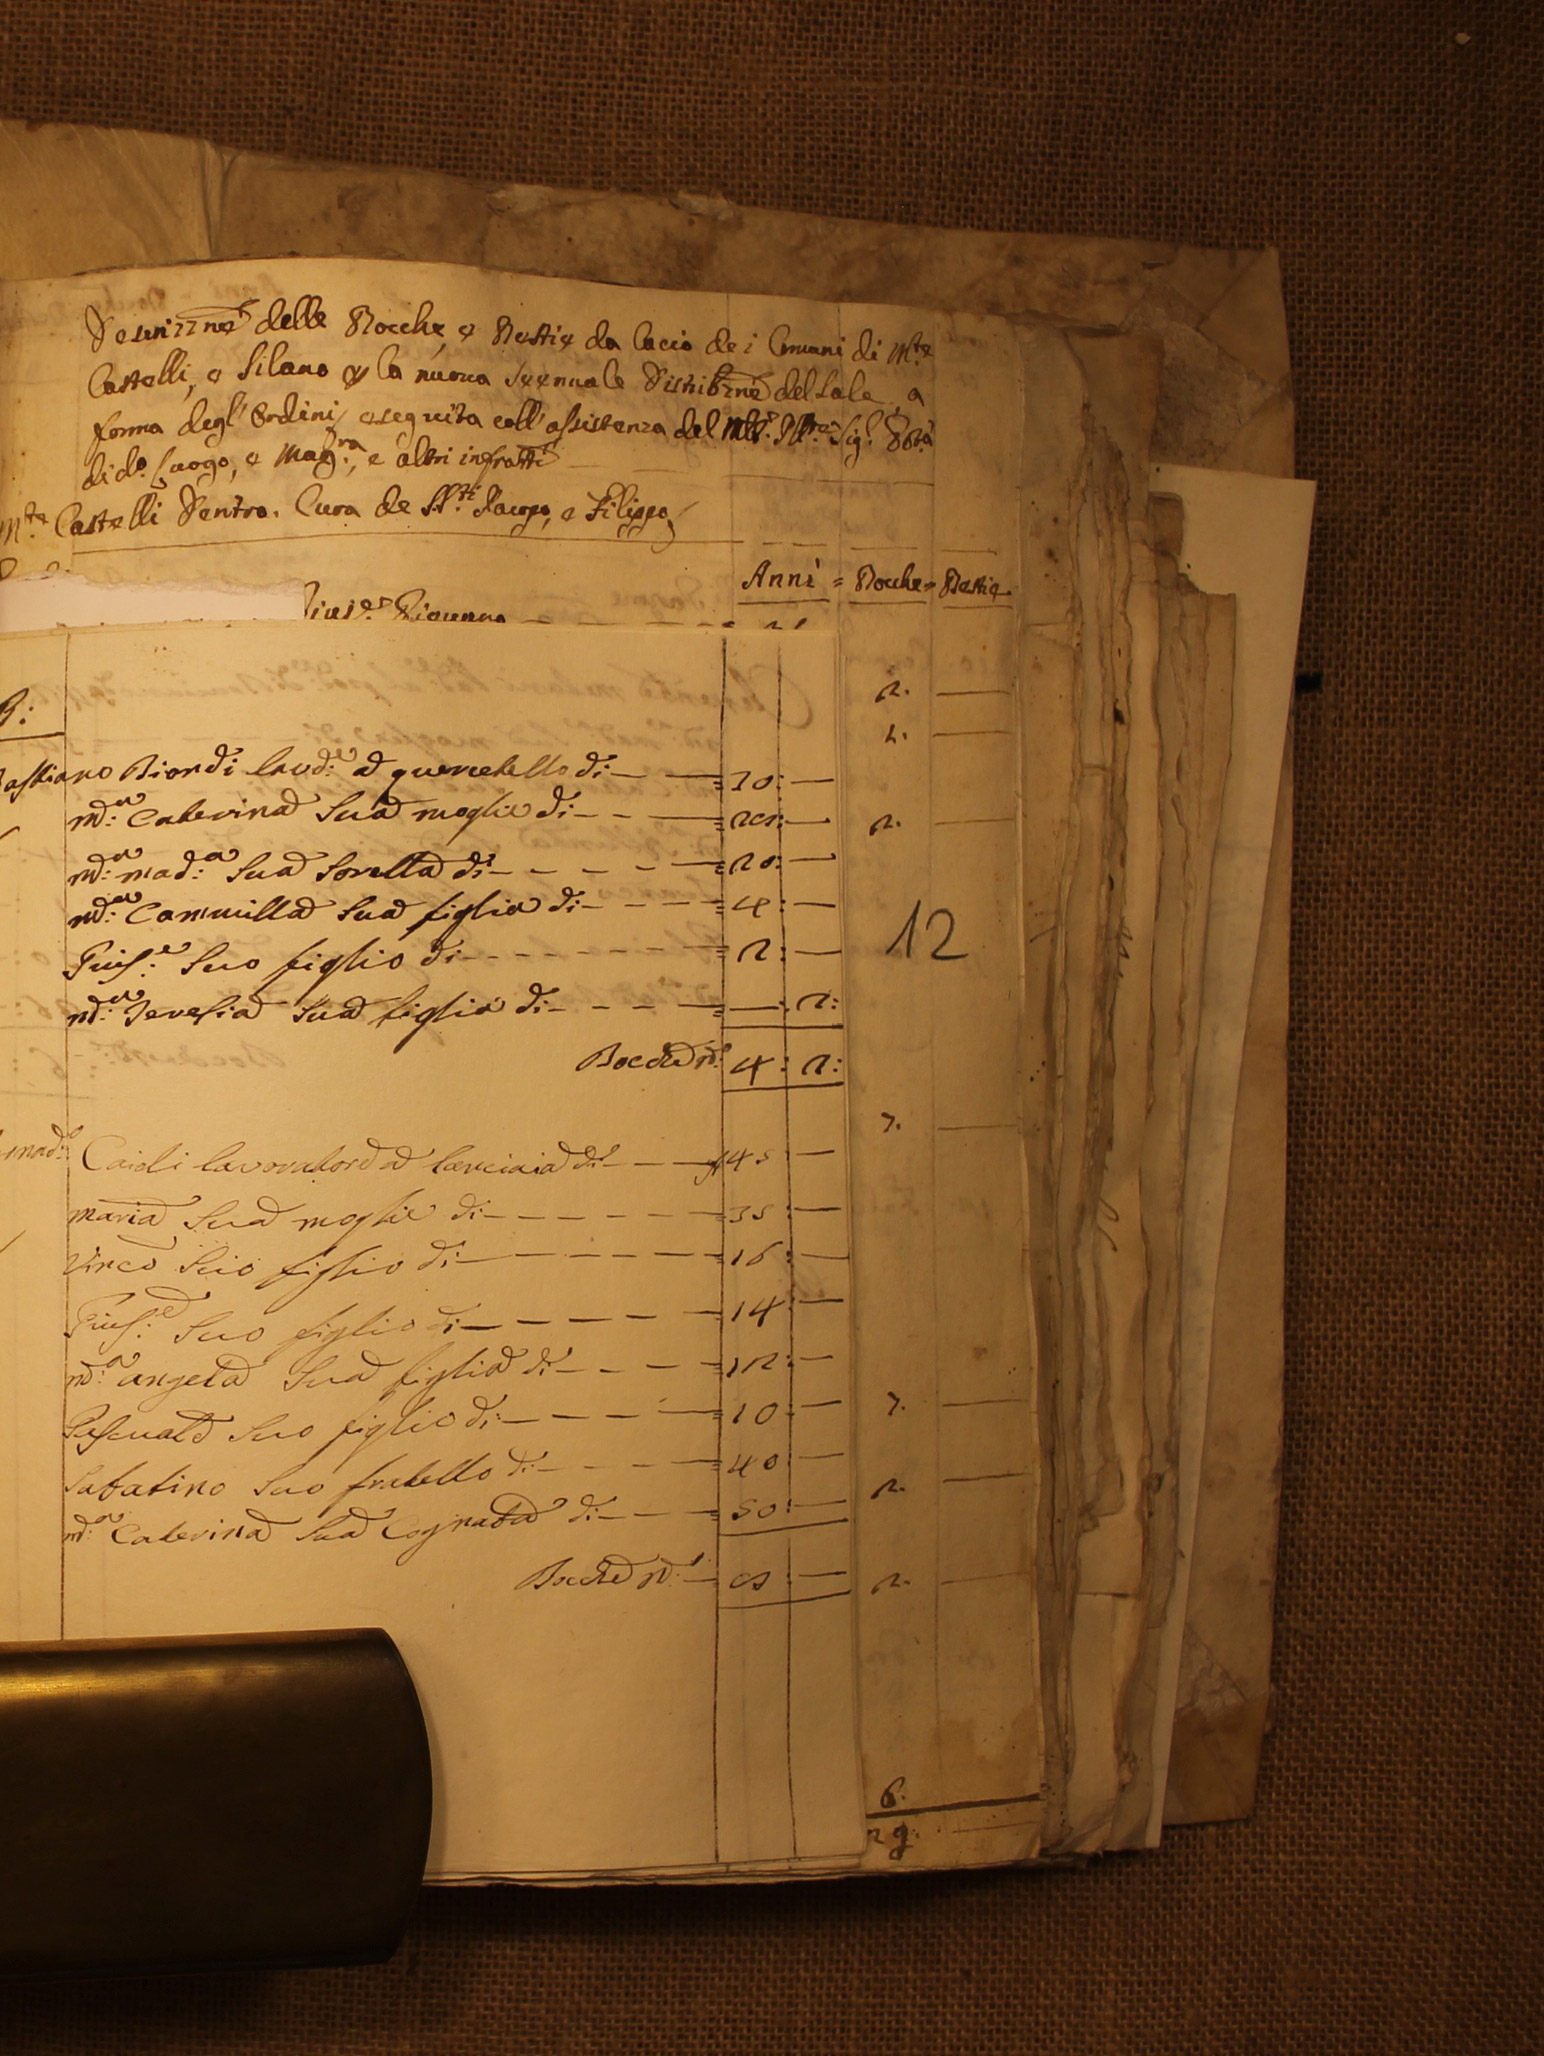 Descrizzne delle Bocche, e Bestie da Cacio dei Comuni di Mte
Castelli, e Silano p la nuova Sexennale Distribzne del Sale, a
forma degl'Ordini, eseguita coll'assistenza del Mlt. Illre Sig. Pottà
di do. Luogo, e Magra, e altri infratti
Mte Castelli Dentro. Cura de SS.ti Jacopo, e Filippo
Anni = Bocche = Bestie
Giovanna
B:
Bastiano Biondi lavd:e a quercetello di: 30:
Md:a Caterina Sua moglie di:
Md:a mad:a Sua Sorella di 20:
Md:a Cammilla Sua figlia di: 4:
Giuse:e Suo figlio di: 2:
Md:a Teresia Sua figlia di: 2:
Bocche No: 4: 2:
12
Caioli lavoratore a lanciaia di 45
maria Sua moglie di: 35
Vinco Suo figlio di: 16:
Giuse:e Suo figlio di: 14:
Md:a angela Sua figlia di: 12:
Pascuale Suo figlio di: 10:
Sabatino Suo fratello di: 40
Md:a Caterina Sua Cognata di: 50:
Bocche No:
2.
2.
2.
7.
7.
2.
2.
6.
29.